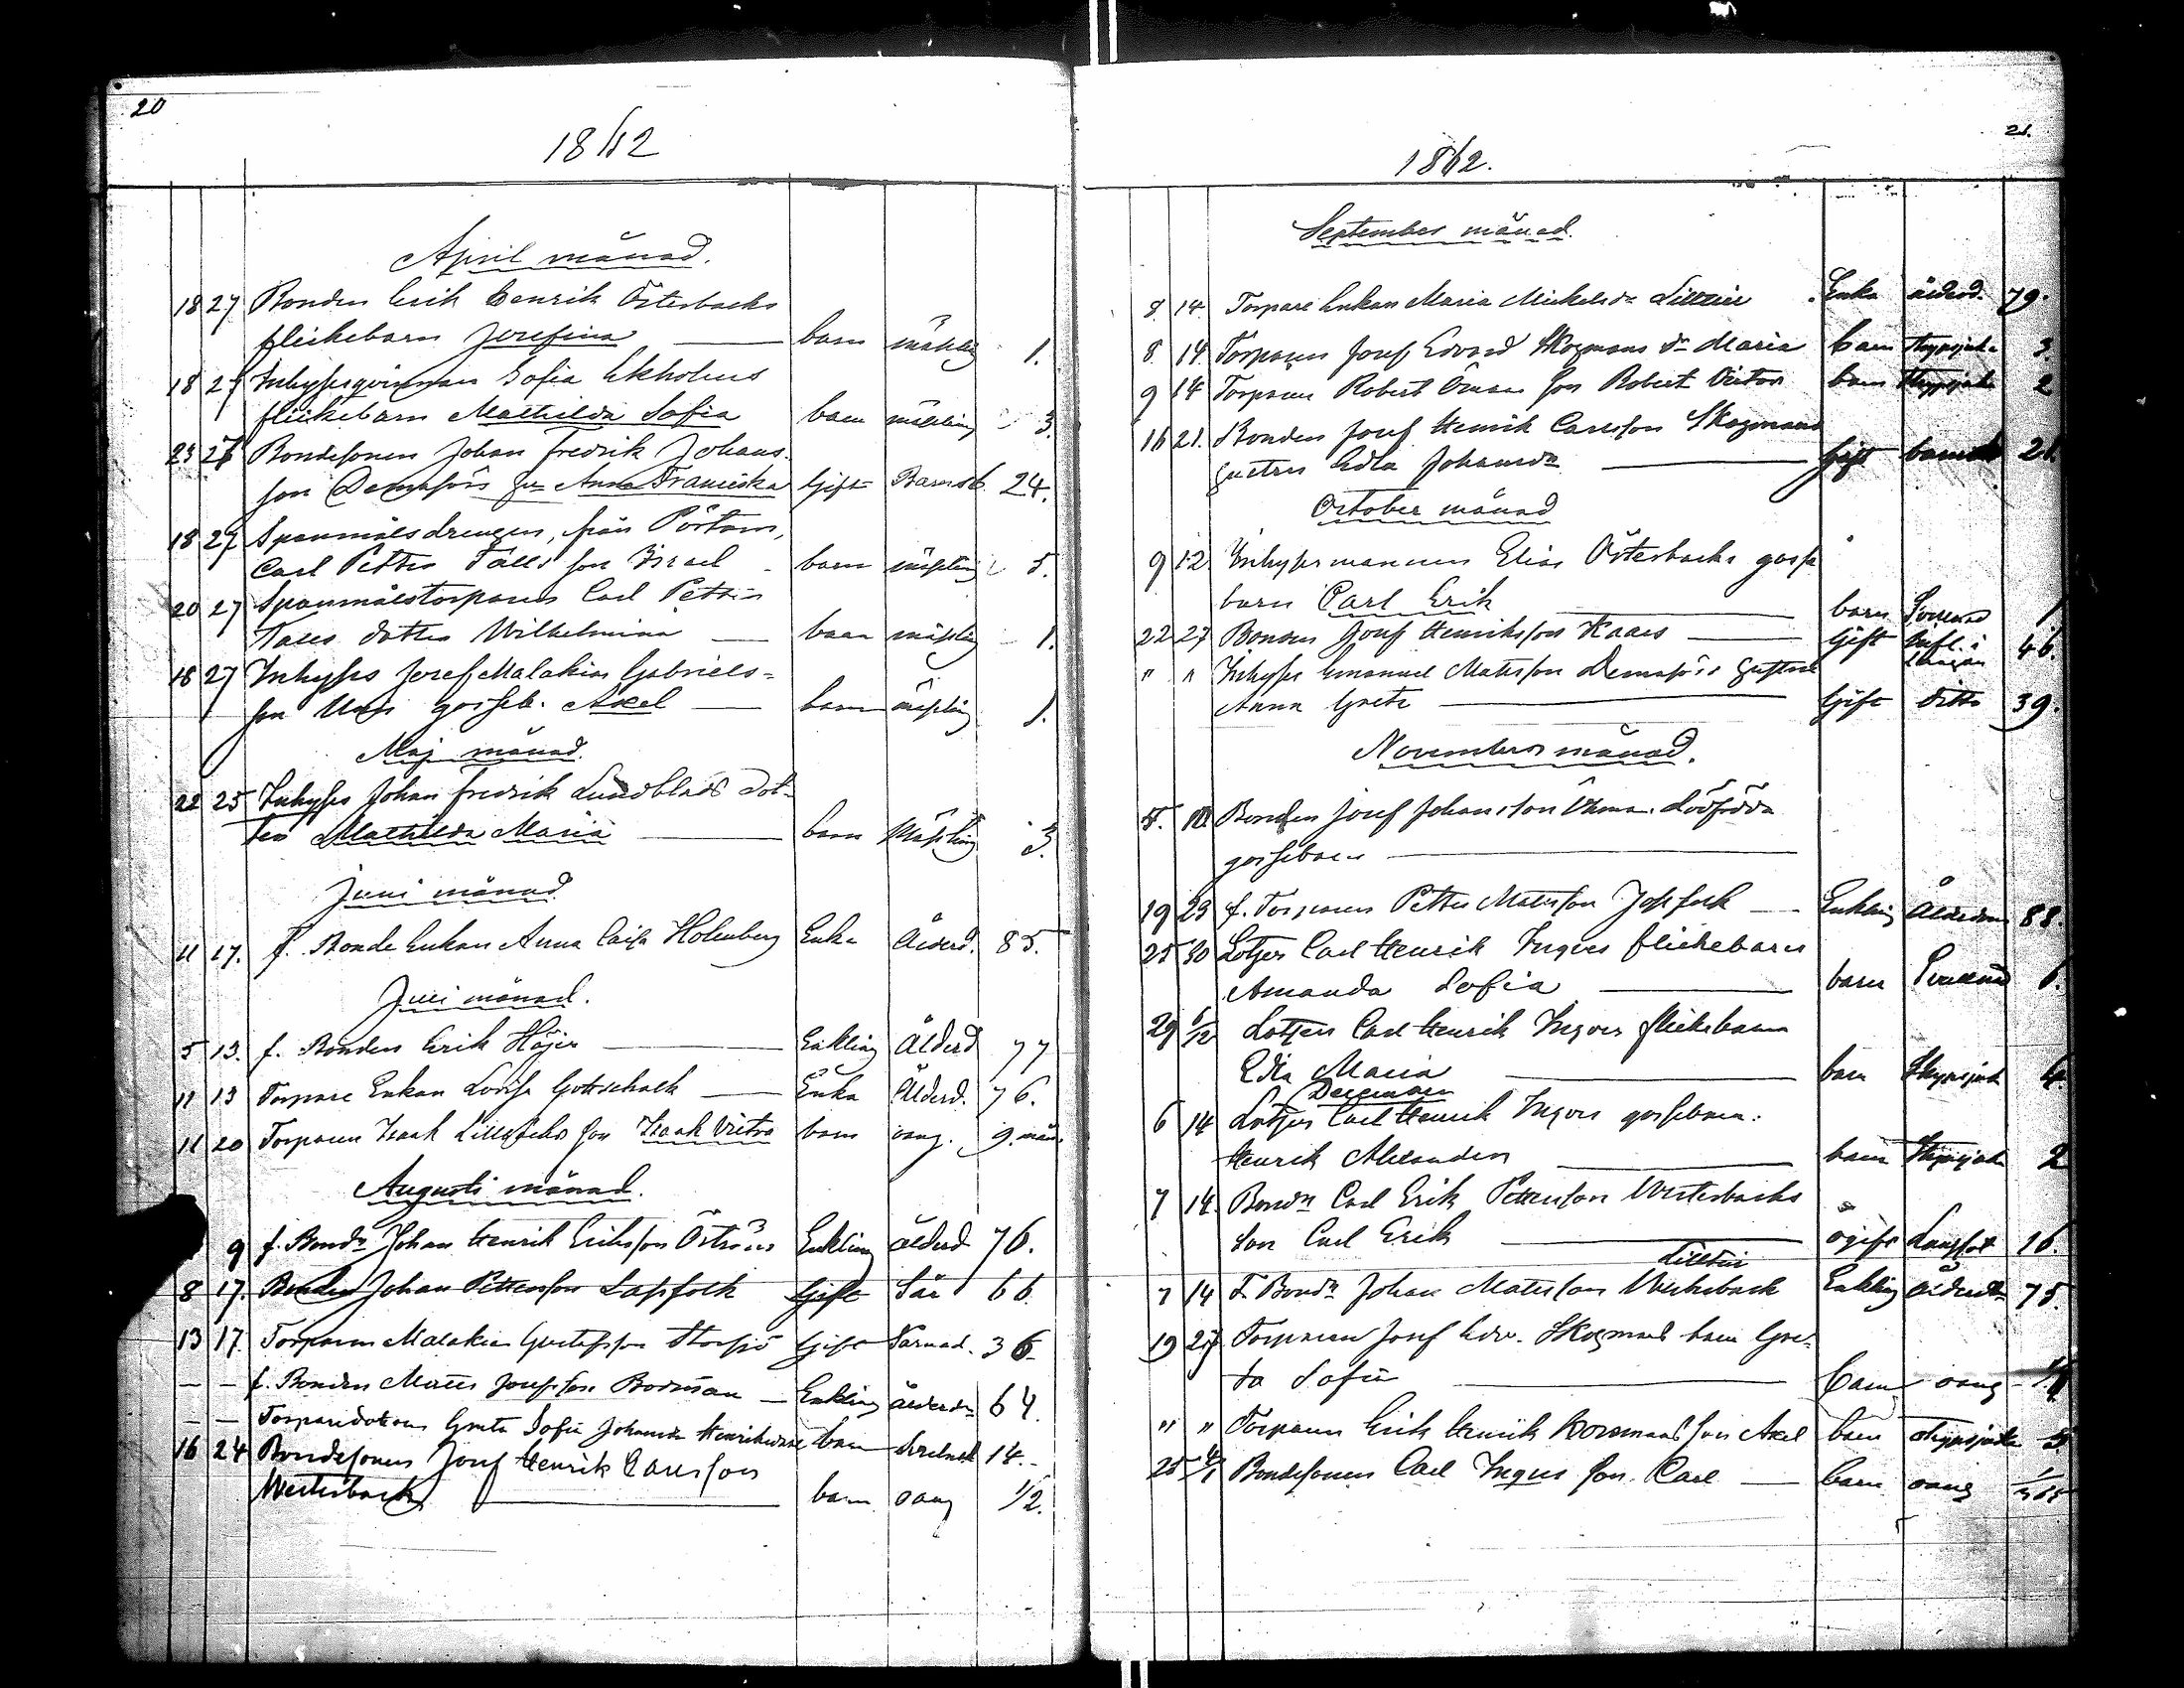 20
1862
April månad.
18 27 Bonden Erik Henrik Österbacks
flickebarn Josefina barn mässling 1.
18 27 Inhysesqvinnan Sofia Ekholms
flickebarn Mathilda Sofia barn mässling 3.
23 27 Bondesonen Johan Fredrik Johans-
son hu Anna Franciska Gift Barnsb. 24.
18 27 Spanmålsdrengen, från Pörtom,
Carl Petter Tålls son Israel barn mässling 5.
20 27 Spanmålstorparen Carl Petter
Tålls dotter Wilhelmina barn mässling 1.
18 27 Inhyses Josef Malakias Gabriels-
son gosseb. Axel barn mässling 1.
Maj månad.
22 25 Inhyses Johan Fredrik Lundblads dot-
ter Mathilda Maria barn Mässling 3.
Juni månad
11 17. f. Bonde Enkan Anna Caisa Holmberg Enka Ålderd. 85.
Juli månad.
5 13. f. Bonden Erik Höjer Enkling Ålderd 77
11 13 Torpare Enkan Lovisa Gottschalk Enka Ålderd. 76.
11 20 Torparen Isaak son Isaak Victor barn oang. 9. mån.
Augusti månad.
9 f. Bondn Johan Henrik Eriksson Enkling ålderd 76.
8 17. Bonden Johan Pettersson Lapfolk Gift Sår 66.
13 17. Torparen Malakias Gustafsson Storsjö Gift 36.
— — f. Bonden Matts Josefsson Bodman Enkling ålderdn 64.
— — Torparedottren Greta Sofia Johansdr barn 14.
16 24 Bondesonen Josef Henrik Carlsson
Westerback barn oang 1/2.
21.
1862.
September månad.
8. 14. Torpare Enkan Maria Mickelsdr Lilltin Enka ålderd. 79.
8. 14. Torparen Josef Edvard Skogmans dr Maria barn strypsjuka 3.
9 14 Torparen Robert Öman son Robert Victor barn strypsjuka 2
16 21. Bonden Josef Henrik Carlsson Skogmans
hustru Edla Johansdr Gift barnsb 21.
October månad
9 12 Inhysesmannen Elias Österbacks gosse
barn Carl Erik barn 1
22 27 Bonden Josef Henriksson Haars Gift Infl. i lungan 46.
" " Inhyses Emanuel Matsson hustru
Anna Greta Gift ditto 39.
November månad.
5. 10. Bonden Josef Johansson Öhman Dödfödda
gossebarn
19 23 f. Torparen Petter Matsson Enkling Ålderdom 88.
25 30 Lotsen Carl Henrik Ingves flickebarn
Amanda Sofia barn 6.
29 6/12 Lotsen Carl Henrik Ingves flickebarn
Edla Maria barn Strypsjuk 4.
December
6 14 Lotsen Carl Henrik Ingves gossebarn:
Henrik Alexander barn Strypsjuk 2
7 14. Bondn Carl Erik Pettersson Westerbacks
son Carl Erik ogift Lungsot 16.
Lilltin
7 14 F. Bondn Johan Matsson Westerback Enkling ålderdom 75.
19 27 Torparen Josef Edv. Skogmans barn Gre-
ta Sofia barn oang
" " Torparen Erik Henrik son Axel barn strypsjuka 5
25 4/1 Bondesonen Carl Ingves son Carl barn oang